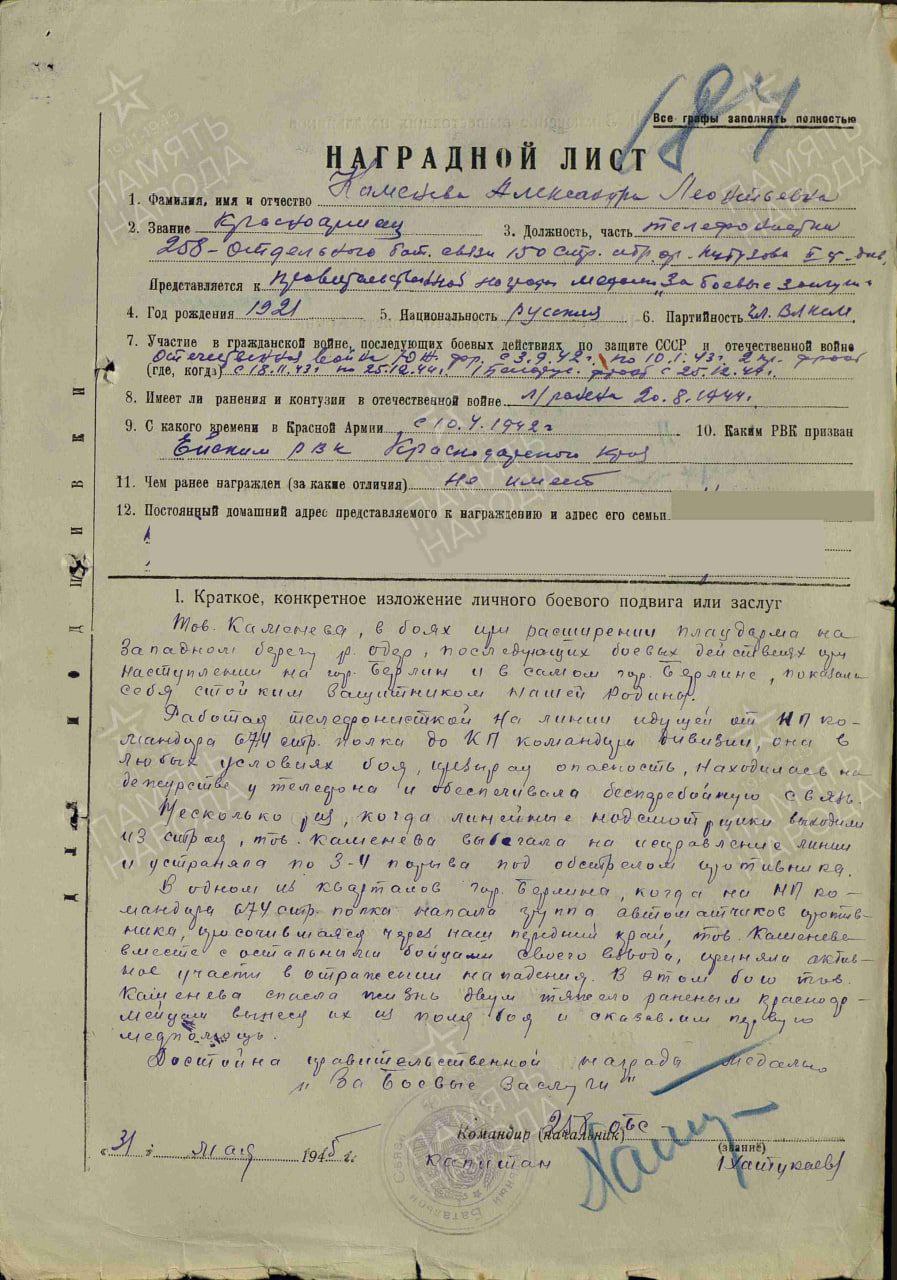 Все графы заполнять полностью
НАГРАДНОЙ ЛИСТ
1. Фамилия, имя и отчество Каменева Александра Леонтьевна
2. Звание Красноармеец 3. Должность, часть телефонистка
258-отдельного бат. связи 150 стр. ордена Кутузова II ст. див.
Представляется к правительственной награде медали „За боевые заслуги
4. Год рождения 1921 5. Национальность русская 6. Партийность чл. ВЛКСМ
7. Участие в гражданской войне, последующих боевых действиях по защите СССР и отечественной войне
Отечественная война Юж. фр. с 3.9.42г. по 10.1.43г. 2 фронт
(где, когда) с 18.11.43г. по 25.12.44г. 1 Белорус. фронт с 25.12.44г.
8. Имеет ли ранения и контузии в отечественной войне л/ранена 20.8.1944г.
9. С какого времени в Красной Армии с 10.4.1942г 10. Каким РВК призван
Ейским РВК Краснодарского края
11. Чем ранее награжден (за какие отличия) не имеет
12. Постоянный домашний адрес представляемого к награждению и адрес его семьи
I. Краткое, конкретное изложение личного боевого подвига или заслуг
Тов. Каменева, в боях при расширении плацдарма на
Западном берегу р. Одер, последующих боевых действиях при
наступлении на гор. Берлин и в самом гор. Берлине, показала
себя стойким защитником нашей Родины.
Работая телефонисткой на линии идущей от НП ко-
мандира 674 стр. полка до КП командира дивизии, она в
любых условиях боя, презирая опасность, находилась на
дежурстве у телефона и обеспечивала бесперебойную связь.
Несколько раз, когда линейные надсмотрщики выходили
из строя, тов. Каменева выбегала на исправление линии
и устраняла по 3-4 порыва под обстрелом противника.
В одном из кварталов гор. Берлина, когда на НП ко-
мандира 674 стр. полка напала группа автоматчиков против-
ника, просочившаяся через наш передний край, тов. Каменева
вместе с остальными бойцами своего взвода, приняла актив-
ное участи в отражении нападения. В этом бою тов.
Каменева спасла жизнь двум тяжело раненым красноар-
мейцам вынеся их из поля боя и оказав им первую
медпомощь.
Достойна правительственной награды медалью
„За Боевые Заслуги"
Командир (начальник) 258 обс
(звание)
„31" мая 1945 г. капитан /Хатукаев/
ПОДШИВКИ
ДЛЯ
ПАМЯТЬ НАРОДА
ПАМЯТЬ НАРОДА
ПАМЯТЬ НАРОДА
ПАМЯТЬ НАРОДА
ПАМЯТЬ НАРОДА
ПАМЯТЬ НАРОДА